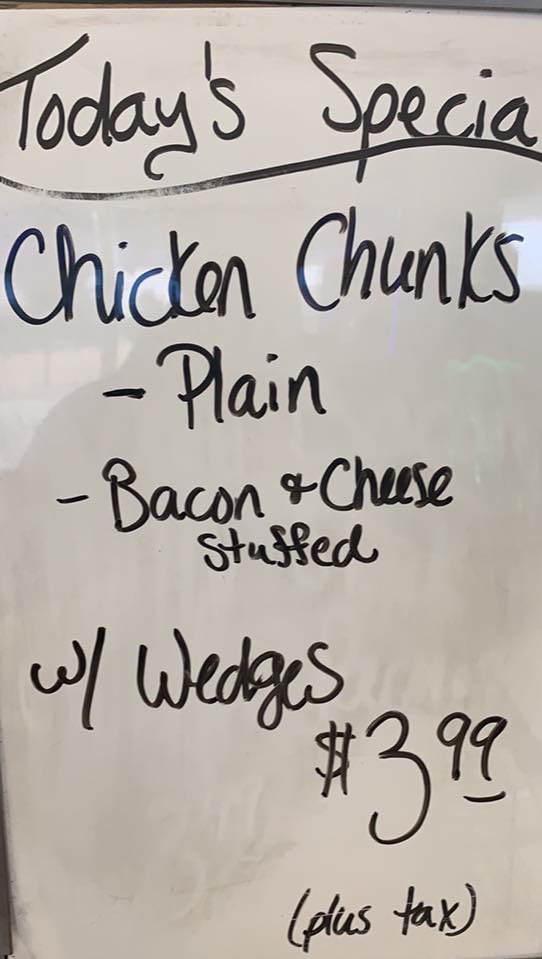 Today's Specia
Chicken Chunks
- Plain
- Bacon & Cheese
stuffed
w/ Wedges
$3.99
(plus tax)